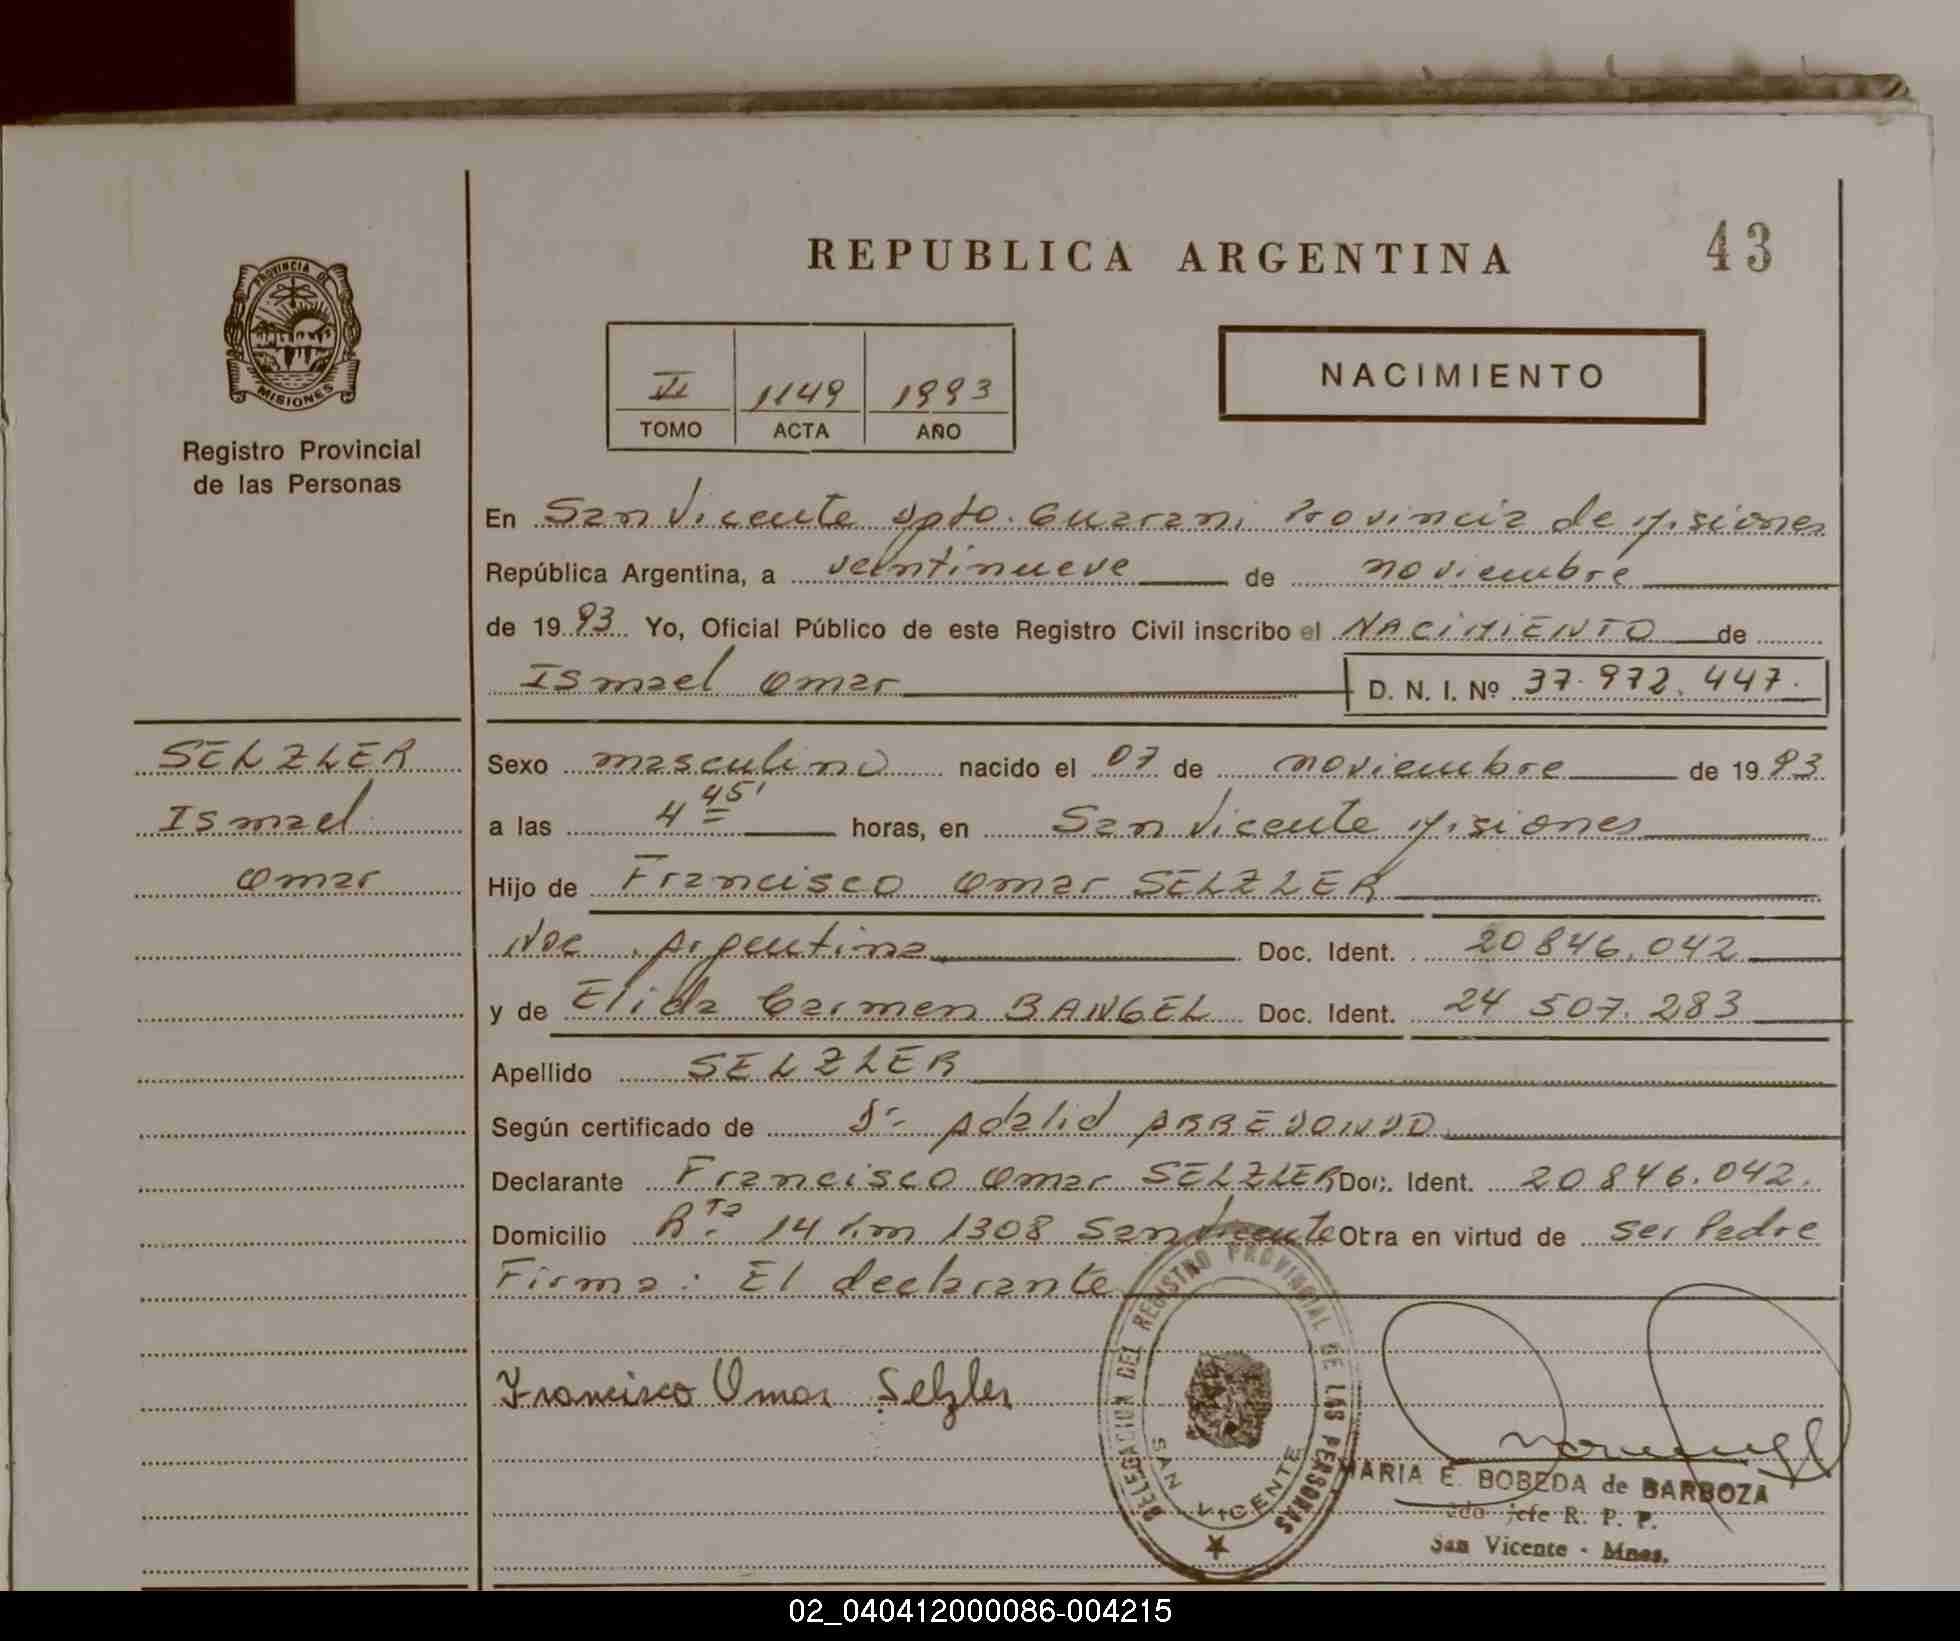 REPUBLICA ARGENTINA
43
PROVINCIA DE
MISIONES
Registro Provincial
de las Personas
VI 1149 1993
TOMO ACTA AÑO
NACIMIENTO
En San Vicente Dpto. Guarani Provincia de Misiones
República Argentina, a veintinueve de noviembre
de 1993 Yo, Oficial Público de este Registro Civil inscribo el NACIMIENTO de
Ismael Omar D. N. I. Nº 37.972.447.
SELZLER
Ismael
Omar
Sexo masculino nacido el 07 de noviembre de 1993
a las 4 45' horas, en San Vicente Misiones
Hijo de Francisco Omar SELZLER
Nac. Argentina Doc. Ident. 20846.042
y de Elida Carmen BANGEL Doc. Ident. 24 507.283
Apellido SELZLER
Según certificado de Dr Adalid ARREDONDO
Declarante Francisco Omar SELZLER Doc. Ident. 20846.042.
Domicilio Rta 14 Km 1308 San Vicente Otra en virtud de ser Padre
Firma: El declarante
Francisco Omar Selzler
DELEGACION DEL REGISTRO PROVINCIAL DE LAS PERSONAS
SAN VICENTE
MARIA E. BOBEDA de BARBOZA
2do jefe R. P. P.
San Vicente - Mnes.
02_040412000086-004215